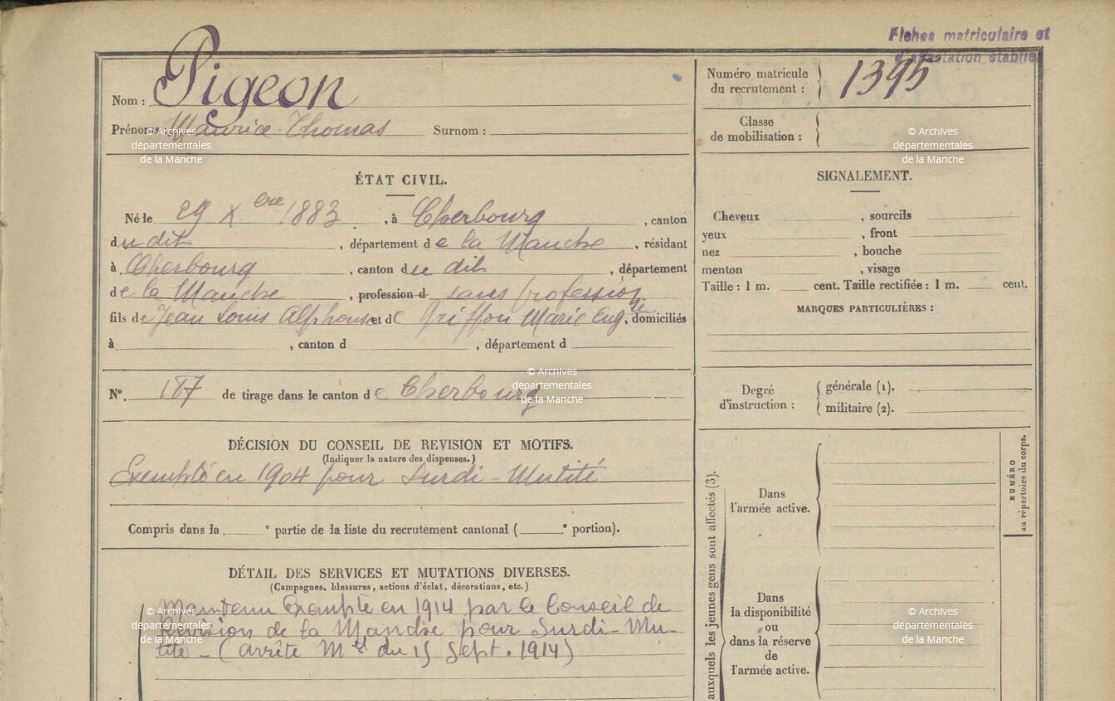 Fiches matriculaire et
d'affectation établies
Nom : Pigeon
Prénoms : Maurice Thomas Surnom :
Numéro matricule
du recrutement : 1395
Classe
de mobilisation :
© Archives
départementales
de la Manche
© Archives
départementales
de la Manche
ÉTAT CIVIL.
Né le 29 Xbre 1883, à Cherbourg, canton
du dit, département de la Manche, résidant
à Cherbourg, canton du dit, département
de la Manche, profession d sans profession
fils de Jean Louis Alphonse et de Griffon Marie Eugnie, domiciliés
à , canton d , département d
SIGNALEMENT.
Cheveux , sourcils
yeux , front
nez , bouche
menton , visage
Taille : 1 m. cent. Taille rectifiée : 1 m. cent.
MARQUES PARTICULIÈRES :
© Archives
départementales
de la Manche
N° 187 de tirage dans le canton de Cherbourg
Degré
d'instruction :
générale (1).
militaire (2).
DÉCISION DU CONSEIL DE REVISION ET MOTIFS.
(Indiquer la nature des dispenses.)
Exempté en 1904 pour Surdi-Mutité
Compris dans la e partie de la liste du recrutement cantonal ( e portion).
DÉTAIL DES SERVICES ET MUTATIONS DIVERSES.
(Campagnes, blessures, actions d'éclat, décorations, etc.)
Maintenu Exempté en 1914 par le Conseil de
Révision de la Manche pour Surdi-Mu-
tité - (arrêté Mel du 15 Sept. 1914)
© Archives
départementales
de la Manche
auxquels les jeunes gens sont affectés (3).
Dans
l'armée active.
NUMÉRO
au répertoire du corps.
Dans
la disponibilité
ou
dans la réserve
de
l'armée active.
© Archives
départementales
de la Manche